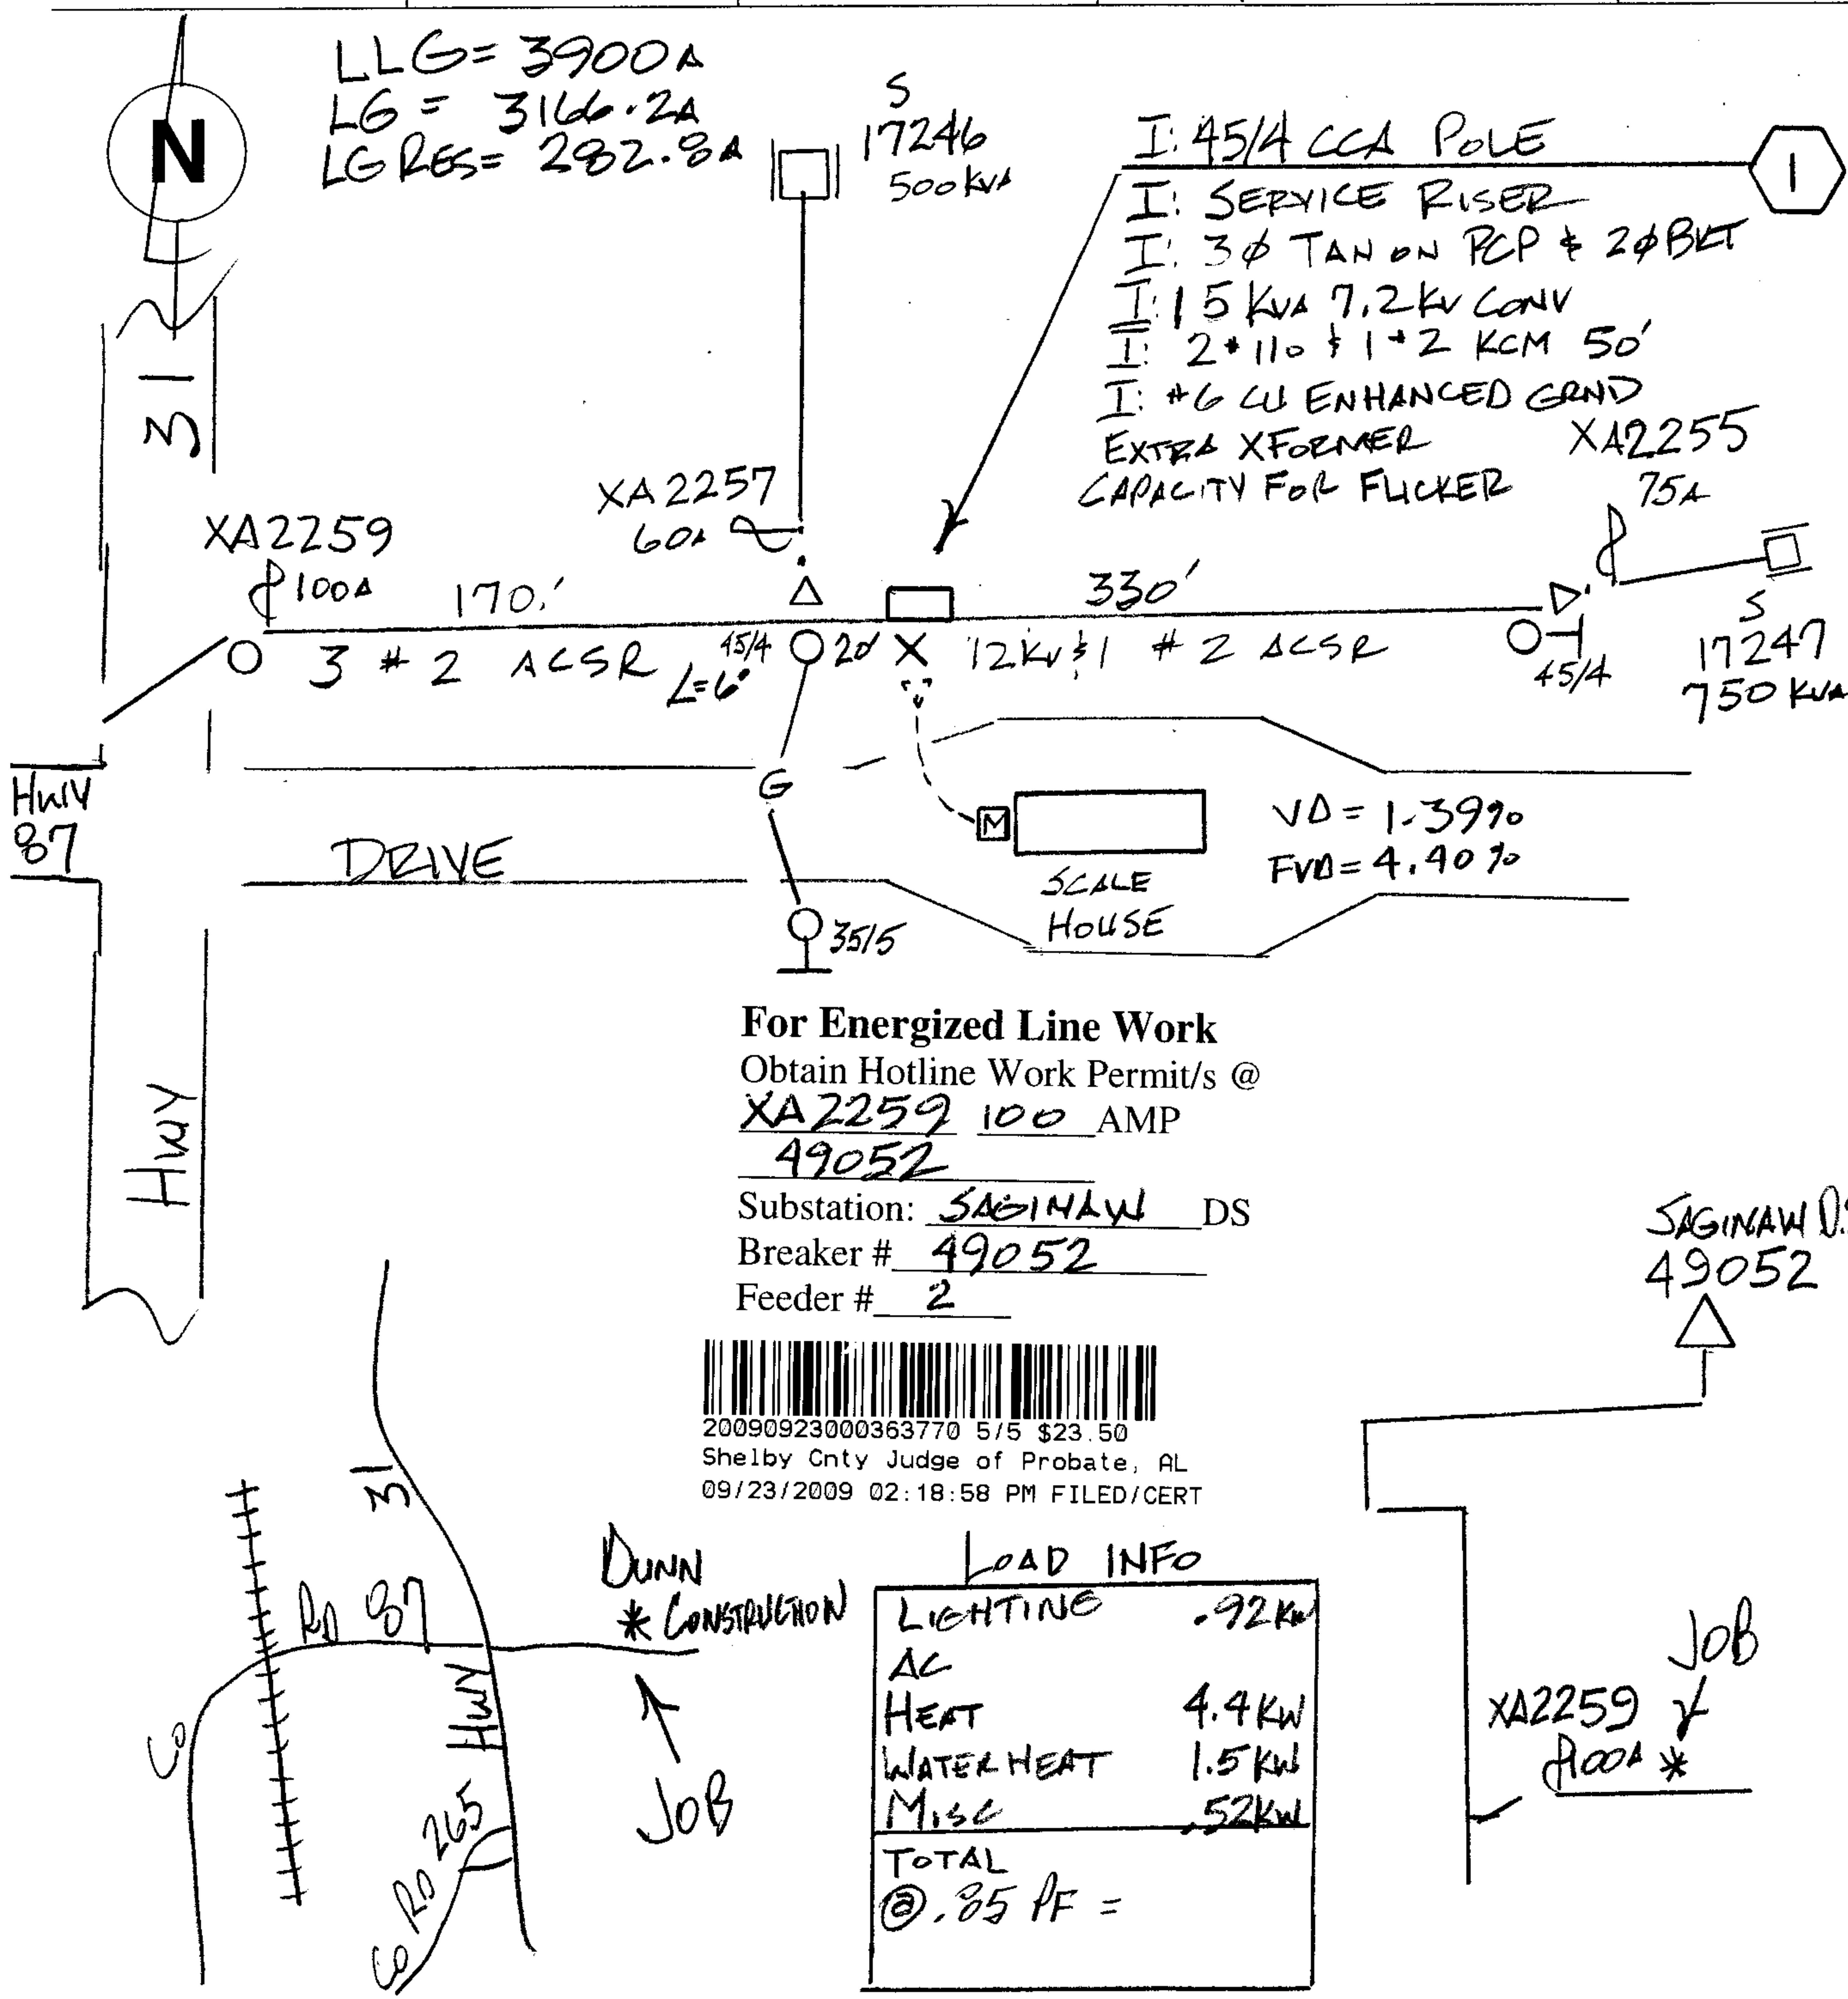 LLG = 3900A
LG = 3166.2A
LG RES = 282.8A
N
S
17246
500 KVA
I: 45/4 CCA POLE
1
I: SERVICE RISER
I: 3Ø TAN ON PCP & 2Ø BKT
I: 15 KVA 7.2KV CONV
I: 2#1/0 & 1#2 KCM 50'
I: #6 CU ENHANCED GRND
EXTRA XFORMER
CAPACITY FOR FLICKER
XA2255
75A
31
XA2257
60A
XA2259
100A
170'
330'
3 # 2 ACSR
45/4
20'
X
12KV & 1 # 2 ACSR
L=6'
45/4
S
17247
750 KVA
G
HWY
87
M
VD = 1.39%
FVD = 4.40%
DRIVE
SCALE
HOUSE
35/5
For Energized Line Work
Obtain Hotline Work Permit/s @
XA2259 100 AMP
49052
Substation: SAGINAW DS
Breaker # 49052
Feeder # 2
HWY
SAGINAW D.S
49052
20090923000363770 5/5 $23.50
Shelby Cnty Judge of Probate, AL
09/23/2009 02:18:58 PM FILED/CERT
31
DUNN
* CONSTRUCTION
RD 87
CO
HWY
JOB
CO RD 265
LOAD INFO
LIGHTING .92KW
AC
HEAT 4.4KW
WATER HEAT 1.5KW
MISC .52KW
TOTAL
@ .85 PF =
JOB
XA2259
100A *